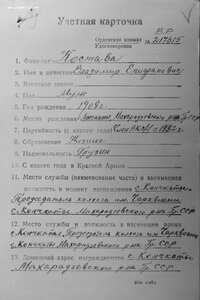 Учетная карточка
В.Р.
Орденская книжка №217015
Удостоверение
1. Фамилия Костава
2. Имя и отчество Владимир Епифанович
3. Воинское звание
4. Пол муж
5. Год рождения 1908 г.
6. Место рождения Махарадзевского р-на Гр.ССР
7. Партийность (с какого года) Член ВКП(б) с 1932 г.
8. Образование Низшее
9. Национальность Грузин
10. С какого года в Красной Армии
11. Место службы (наименование части) и занимаемая
должность в момент награждения с. Кончкати
Председатель колхоза им. Чарквиани
с. Кончкати Махарадзевского р-на Гр.ССР
12. Место службы и должность в настоящее время
с. Кончкати, Председатель колхоза им. Чарквиани,
с. Кончкати Махарадзевского р-на Гр.ССР
13. Домашний адрес награжденного с. Кончкати
Махарадзевского р-на Гр.ССР
(См. н/об.)